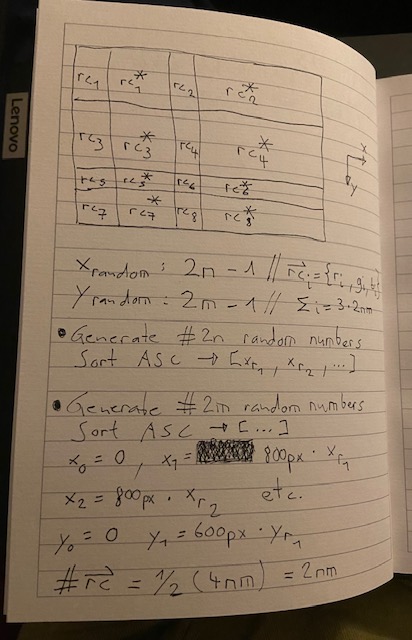 Lenovo
rc₁ rc₁* rc₂ rc₂*
rc₃ rc₃* rc₄ rc₄*
rc₅ rc₅* rc₆ rc₆*
rc₇ rc₇* rc₈ rc₈*
x
y
x_random : 2n - 1 // rc⃗ᵢ = {rᵢ, gᵢ, bᵢ}
y_random : 2m - 1 // Σi = 3·2nm
• Generate #2n random numbers
Sort ASC → [x_r₁, x_r₂, ...]
• Generate #2m random numbers
Sort ASC → [...]
x₀ = 0, x₁ = 800px · x_r₁
x₂ = 800px · x_r₂ etc.
y₀ = 0 y₁ = 600px · y_r₁
#rc⃗ = 1/2 (4nm) = 2nm